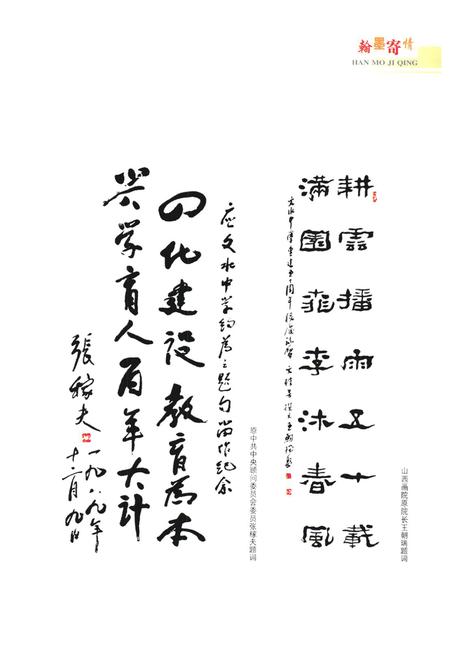 翰墨寄情
HAN MO JI QING
耕雲播雨五十載
滿園桃李沐春風
文水中學建五十周年校慶
山西画院原院长王朝瑞题词
应文水中学约为之题句尚作纪念
四化建设教育为本
兴学育人百年大计
張稼夫
一九八九年
十二月九日
原中共中央顾问委员会委员张稼夫题词